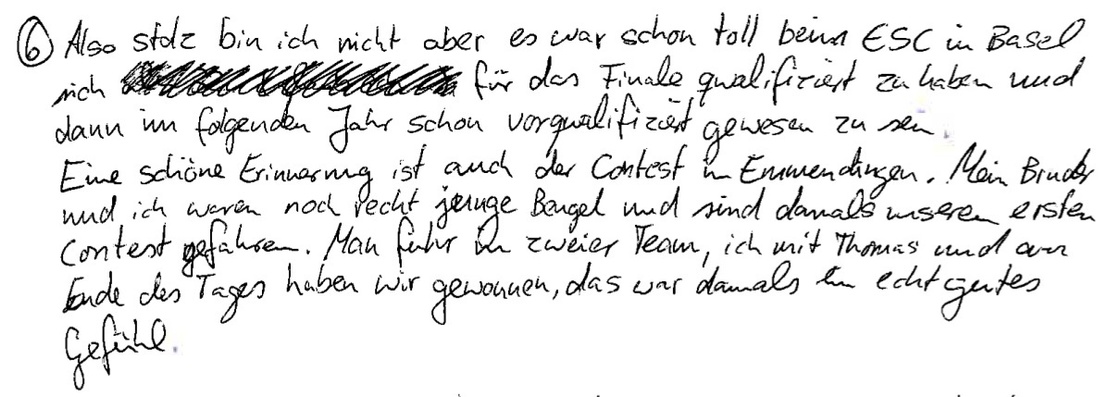 ⑥ Also stolz bin ich nicht aber es war schon toll beim ESC in Basel
sich für das Finale qualifiziert zu haben und
dann im folgenden Jahr schon vorqualifiziert gewesen zu sein.
Eine schöne Erinnerung ist auch der Contest in Emmendingen. Mein Bruder
und ich waren noch recht junge Bengel und sind damals unseren ersten
Contest gefahren. Man fuhr im zweier Team, ich mit Thomas und am
Ende des Tages haben wir gewonnen, das war damals ein echt gutes
Gefühl.